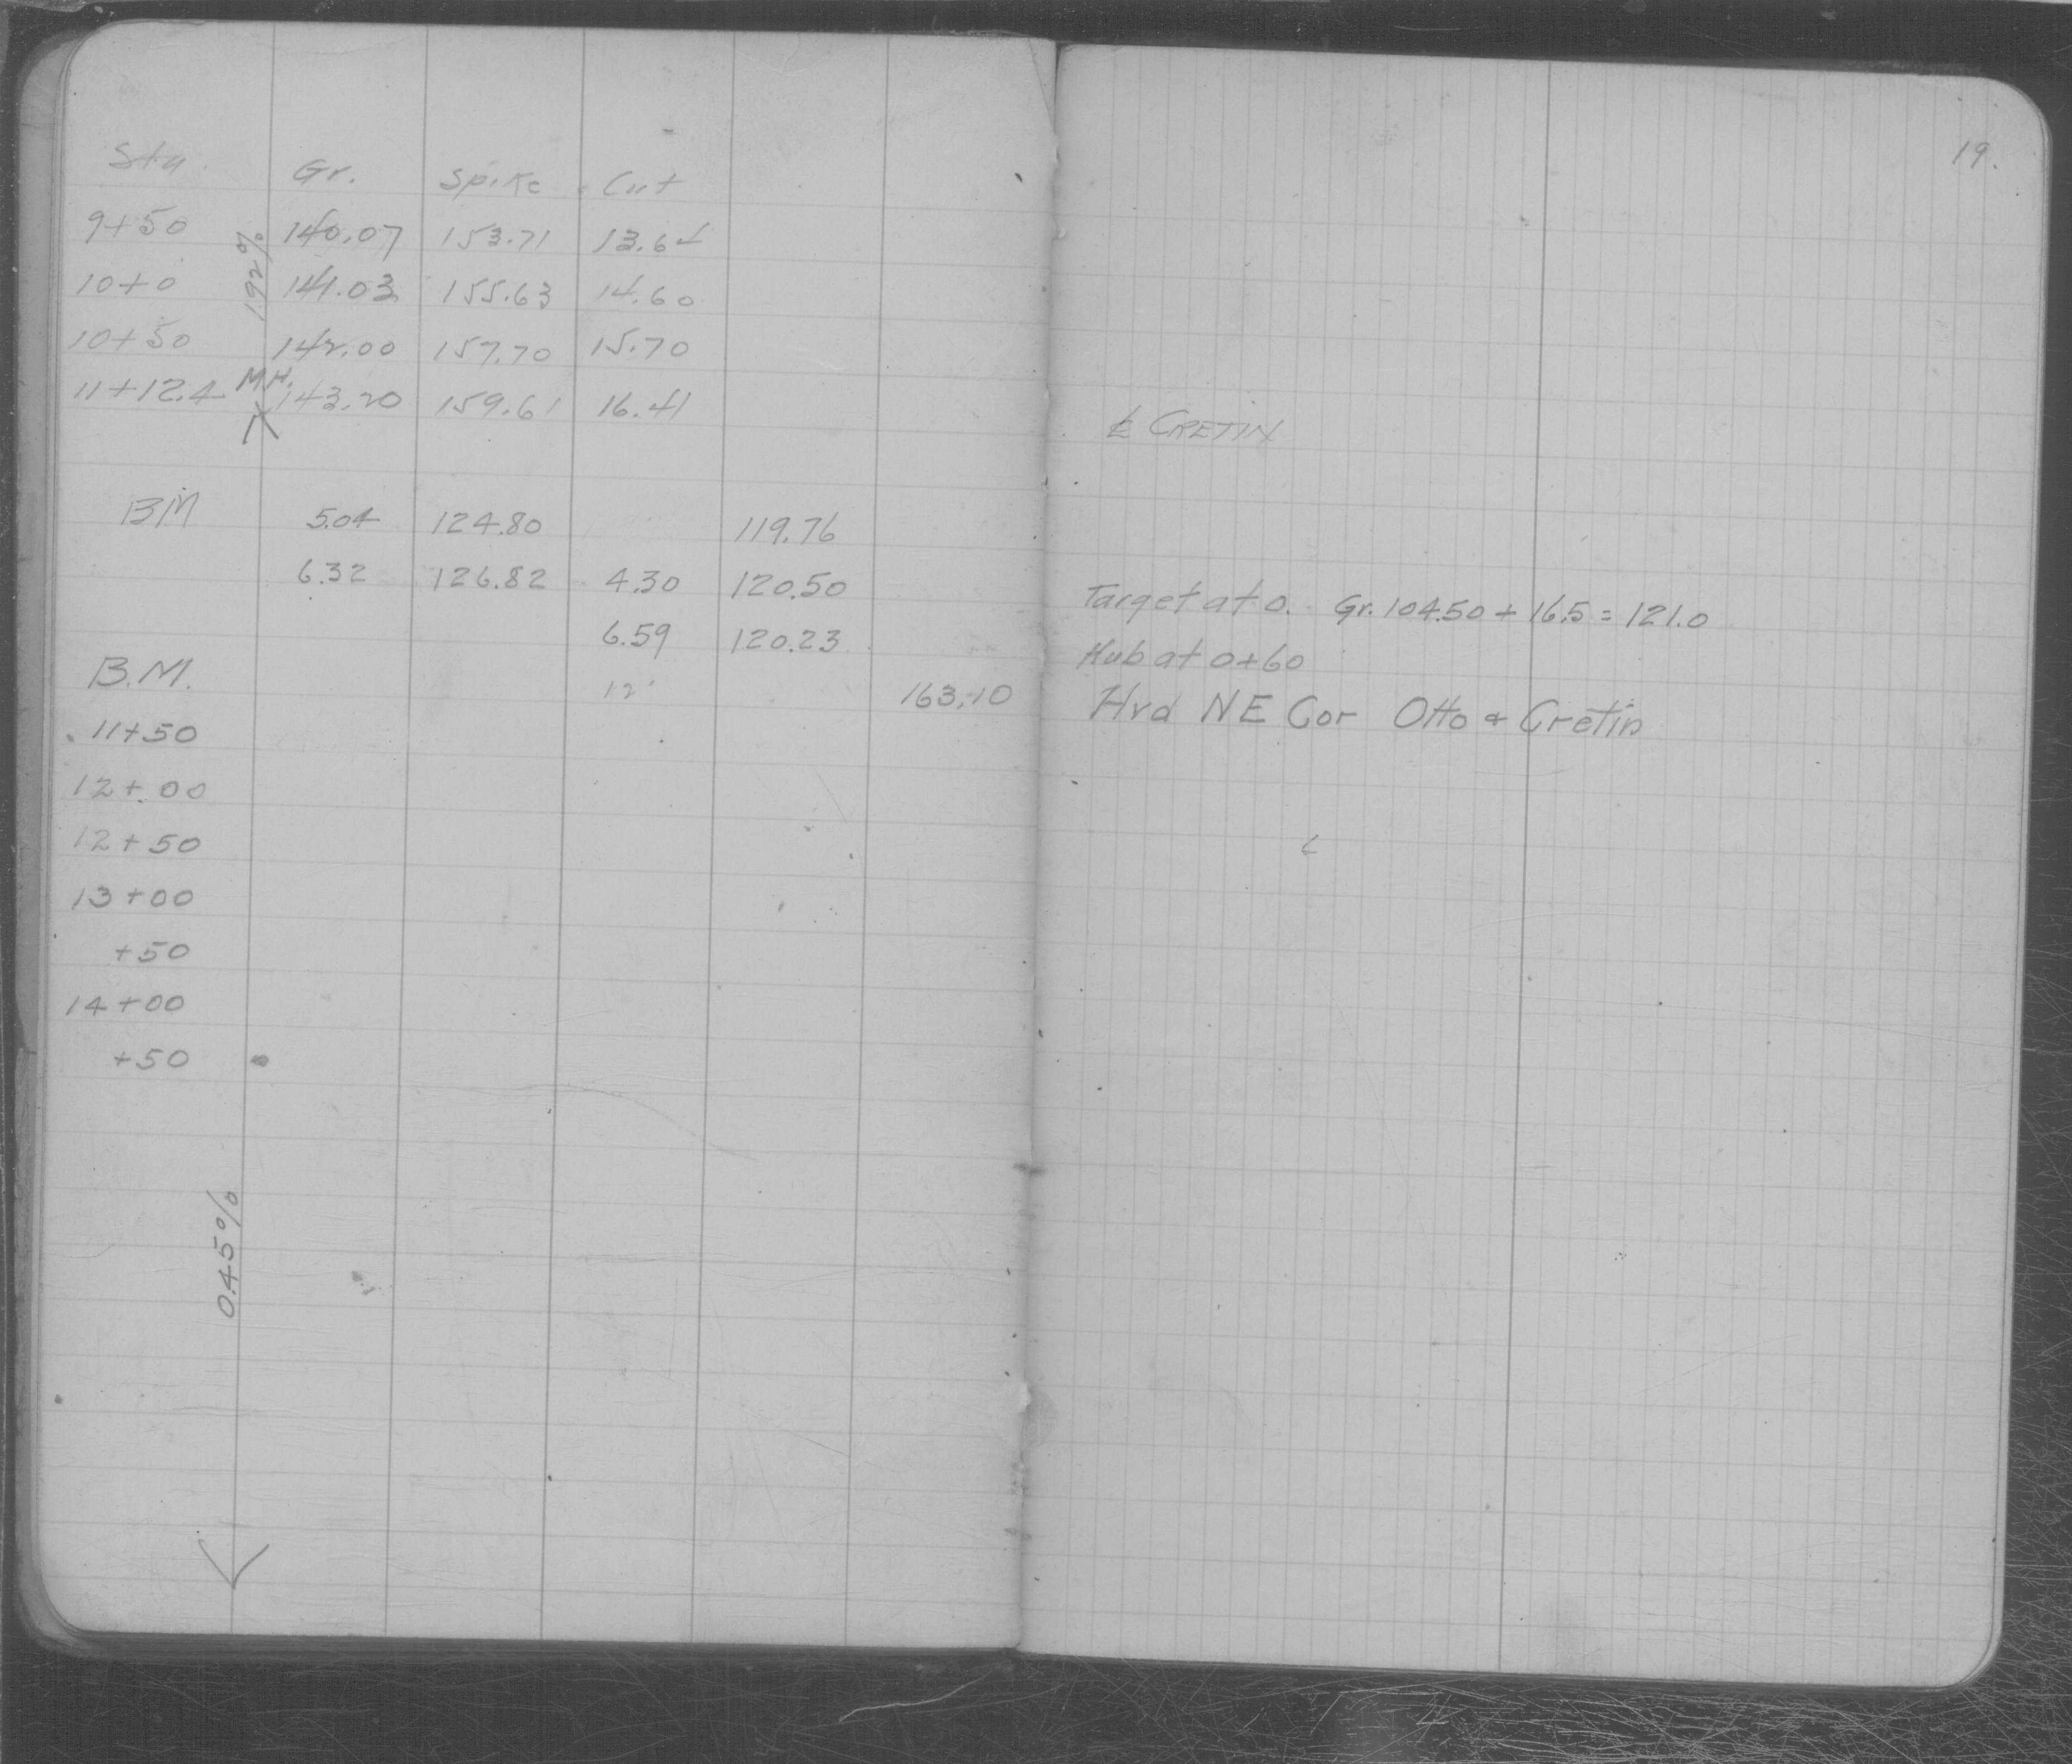 19.
Sta. Gr. Spike Cut
9+50 140.07 153.71 13.64
10+0 141.03 155.63 14.60
10+50 142.00 157.70 15.70
11+12.4 M.H. 143.20 159.61 16.41
192%
℄ CRETIN
BM 5.04 124.80 119.76
6.32 126.82 4.30 120.50 Target at 0. Gr. 104.50 + 16.5 = 121.0
6.59 120.23 Hub at 0+60
B.M. 12' 163.10 Hyd NE Cor Otto & Cretin
11+50
12+00
12+50
13+00
+50
14+00
+50
0.45%